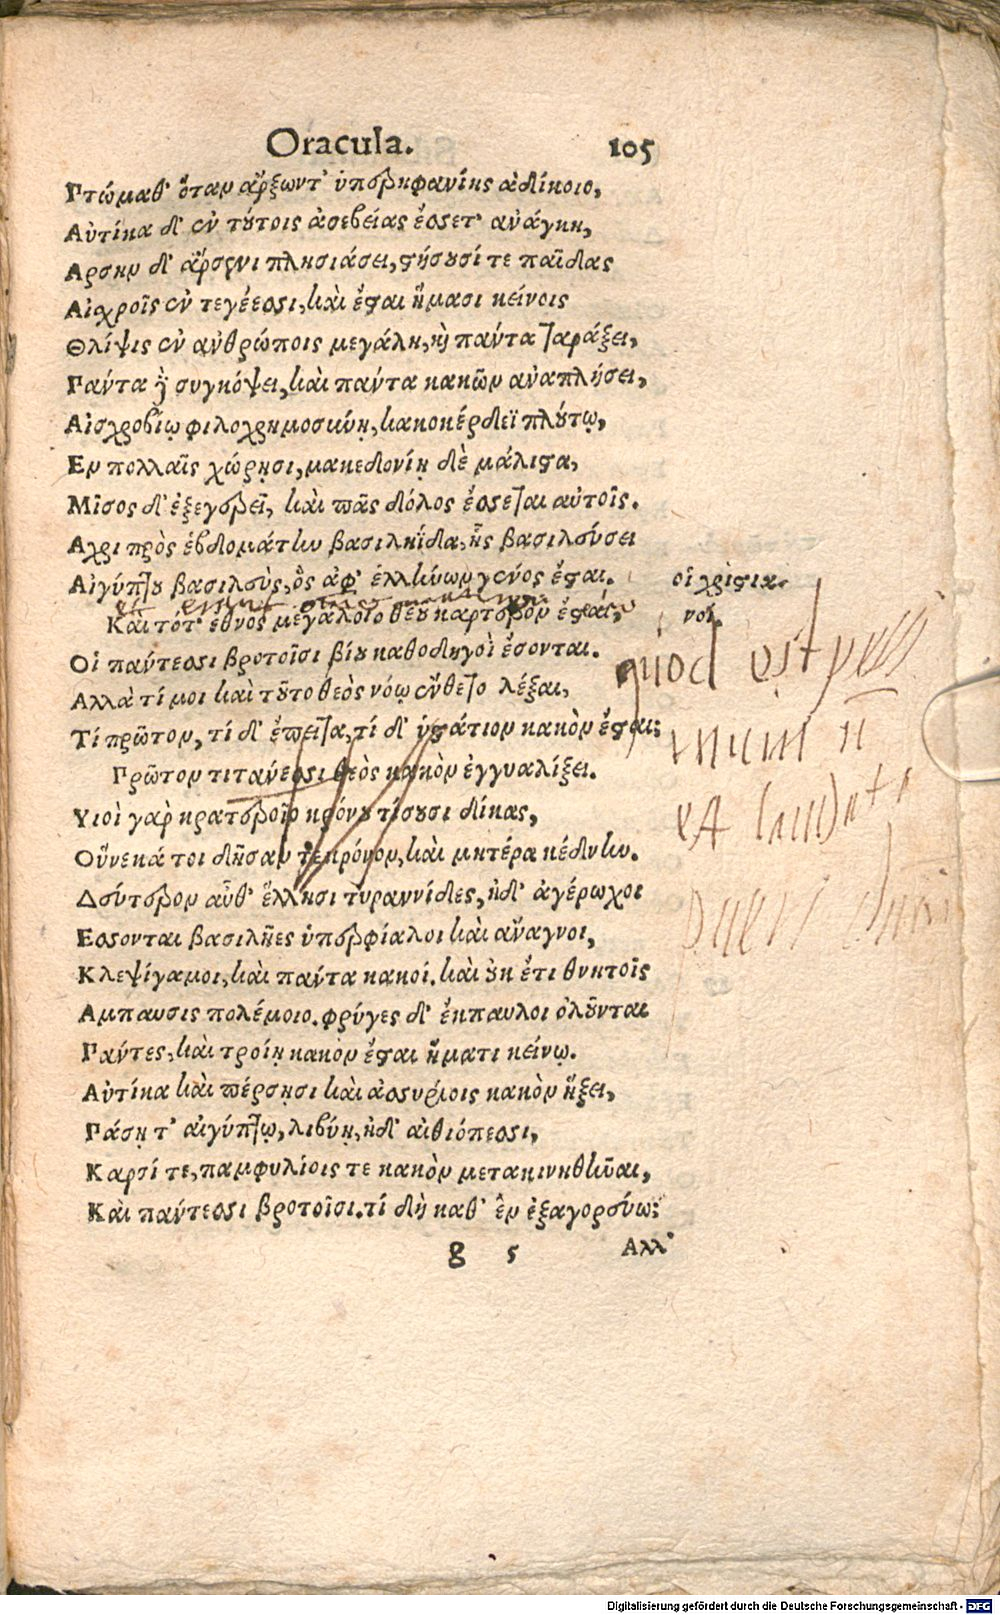 Oracula. 105
Πτώμαθ' ὅταν ἄρξωντ' ὑπερηφανίης ἀδίκοιο,
Αὐτίκα δ' ἐν τούτοις ἀσεβείας ἔσσετ' ἀνάγκη,
Αρσην δ' ἄρσενι πλησιάσει, στήσουσί τε παῖδας
Αἰχροῖς ἐν τεγέεσσι, καὶ ἔσται ἤμασι κείνοις
Θλίψις ἐν ἀνθρώποις μεγάλη, καὶ πάντα ταράξει,
Πάντα δὲ συγκόψει, καὶ πάντα κακῶν ἀναπλήσει,
Αἰσχροβίῳ φιλοχρημοσύνῃ, κακοκέρδεϊ πλούτῳ,
Εν πολλαῖς χώρῃσι, μακεδονίῃ δὲ μάλιστα,
Μῖσος δ' ἐξεγερεῖ, καὶ πᾶς δόλος ἔσσεται αὐτοῖς.
Αχρι πρὸς ἑβδομάτην βασιληΐδα, ἧς βασιλεύσει
Αἰγύπτου βασιλεὺς, ὃς ἀφ' ἑλλήνων γένος ἔσται.
οἱ χριστια-
Καὶ τότ' ἔθνος μεγάλοιο θεοῦ καρτερὸν ἔσται,
νοί.
Οἱ πάντεσσι βροτοῖσι βίου καθοδηγοὶ ἔσονται.
Αλλὰ τί μοι καὶ τοῦτο θεὸς νόῳ ἔνθετο λέξαι,
Τί πρῶτον, τί δ' ἔπειτα, τί δ' ὑστάτιον κακὸν ἔσται;
Πρῶτον τιτάνεσσι θεὸς κακὸν ἐγγυαλίξει.
Υἱοὶ γαρ κρατεροῖο κρόνου τίσουσι δίκας,
Οὕνεκά τοι δῆσαν τε κρόνον, καὶ μητέρα κέδνην.
Δεύτερον αὖθ' ἕλλησι τυραννίδες, ἠδ' ἀγέρωχοι
Εσσονται βασιλῆες ὑπερφίαλοι καὶ ἄναγνοι,
Κλεψίγαμοι, καὶ πάντα κακοί. καὶ οὐκ ἔτι θνητοῖς
Αμπαυσις πολέμοιο. φρύγες δ' ἔκπαυλοι ὀλοῦνται
Πάντες, καὶ τροίῃ κακὸν ἔσται ἤματι κείνῳ.
Αὐτίκα καὶ πέρσῃσι καὶ ἀσσυρίοις κακὸν ἥξει,
Πάσῃ τ' αἰγύπτῳ, λιβύῃ, ἠδ' αἰθιόπεσσι,
Καρσί τε, παμφυλίοις τε κακὸν μετακινηθῆναι,
Καὶ πάντεσσι βροτοῖσι. τί δὴ καθ' ἓν ἐξαγορεύω;
g 5 Αλλ'
quod est